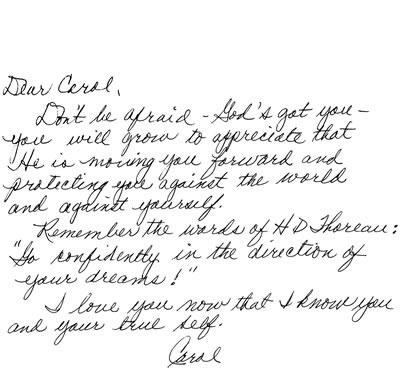 Dear Carol,
Don't be afraid - God's got you -
you will grow to appreciate that
He is moving you forward and
protecting you against the world
and against yourself.
Remember the words of H D Thoreau:
"Go confidently in the direction of
your dreams!"
I love you now that I know you
and your true self.
Carol